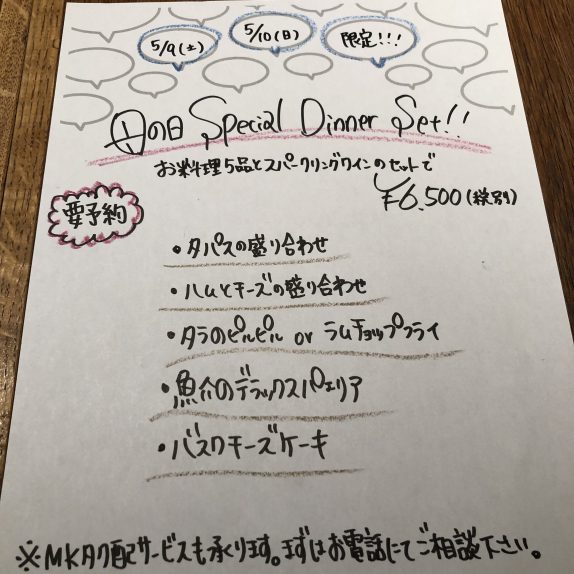 5/9(土)
5/10(日)
限定!!!
母の日 Special Dinner Set!!
お料理5品とスパークリングワインのセットで
¥6,500(税別)
要予約
・タパスの盛り合わせ
・ハムとチーズの盛り合わせ
・タラのピルピル or ラムチョップフライ
・魚介のデラックスパエリア
・バスクチーズケーキ
※MKタク配サービスも承ります。まずはお電話にてご相談下さい。